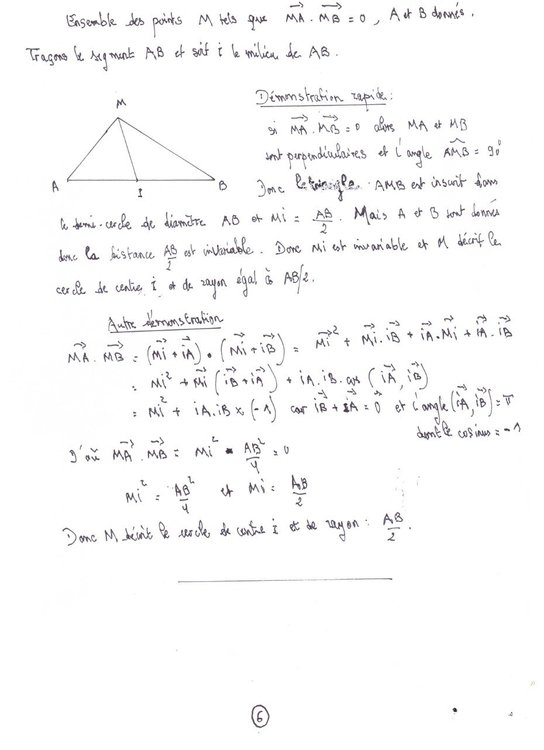 Ensemble des points M tels que MA⃗ . MB⃗ = 0 , A et B donnés.
Traçons le segment AB et soit i le milieu de AB.
M
A I B
Démonstration rapide :
si MA⃗ . MB⃗ = 0 alors MA et MB
sont perpendiculaires et l'angle AMB̂ = 90°
Donc le triangle AMB est inscrit dans
le demi-cercle de diamètre AB et Mi = AB/2 . Mais A et B sont donnés
donc la distance AB/2 est invariable. Donc Mi est invariable et M décrit le
cercle de centre I et de rayon égal à AB/2.
Autre démonstration
MA⃗ . MB⃗ = (Mi⃗ + iA⃗) • (Mi⃗ + iB⃗) = Mi⃗² + Mi⃗ . iB⃗ + iA⃗ . Mi⃗ + iA⃗ . iB⃗
= Mi² + Mi⃗ (iB⃗ + iA⃗) + iA . iB . cos (iA⃗, iB⃗)
= Mi² + iA . iB × (-1) car iB⃗ + iA⃗ = 0⃗ et l'angle (iA⃗, iB⃗) = π
dont le cosinus = -1
D'où MA⃗ . MB⃗ = Mi² - AB²/4 = 0
Mi² = AB²/4 et Mi = AB/2
Donc M décrit le cercle de centre I et de rayon : AB/2 .
6